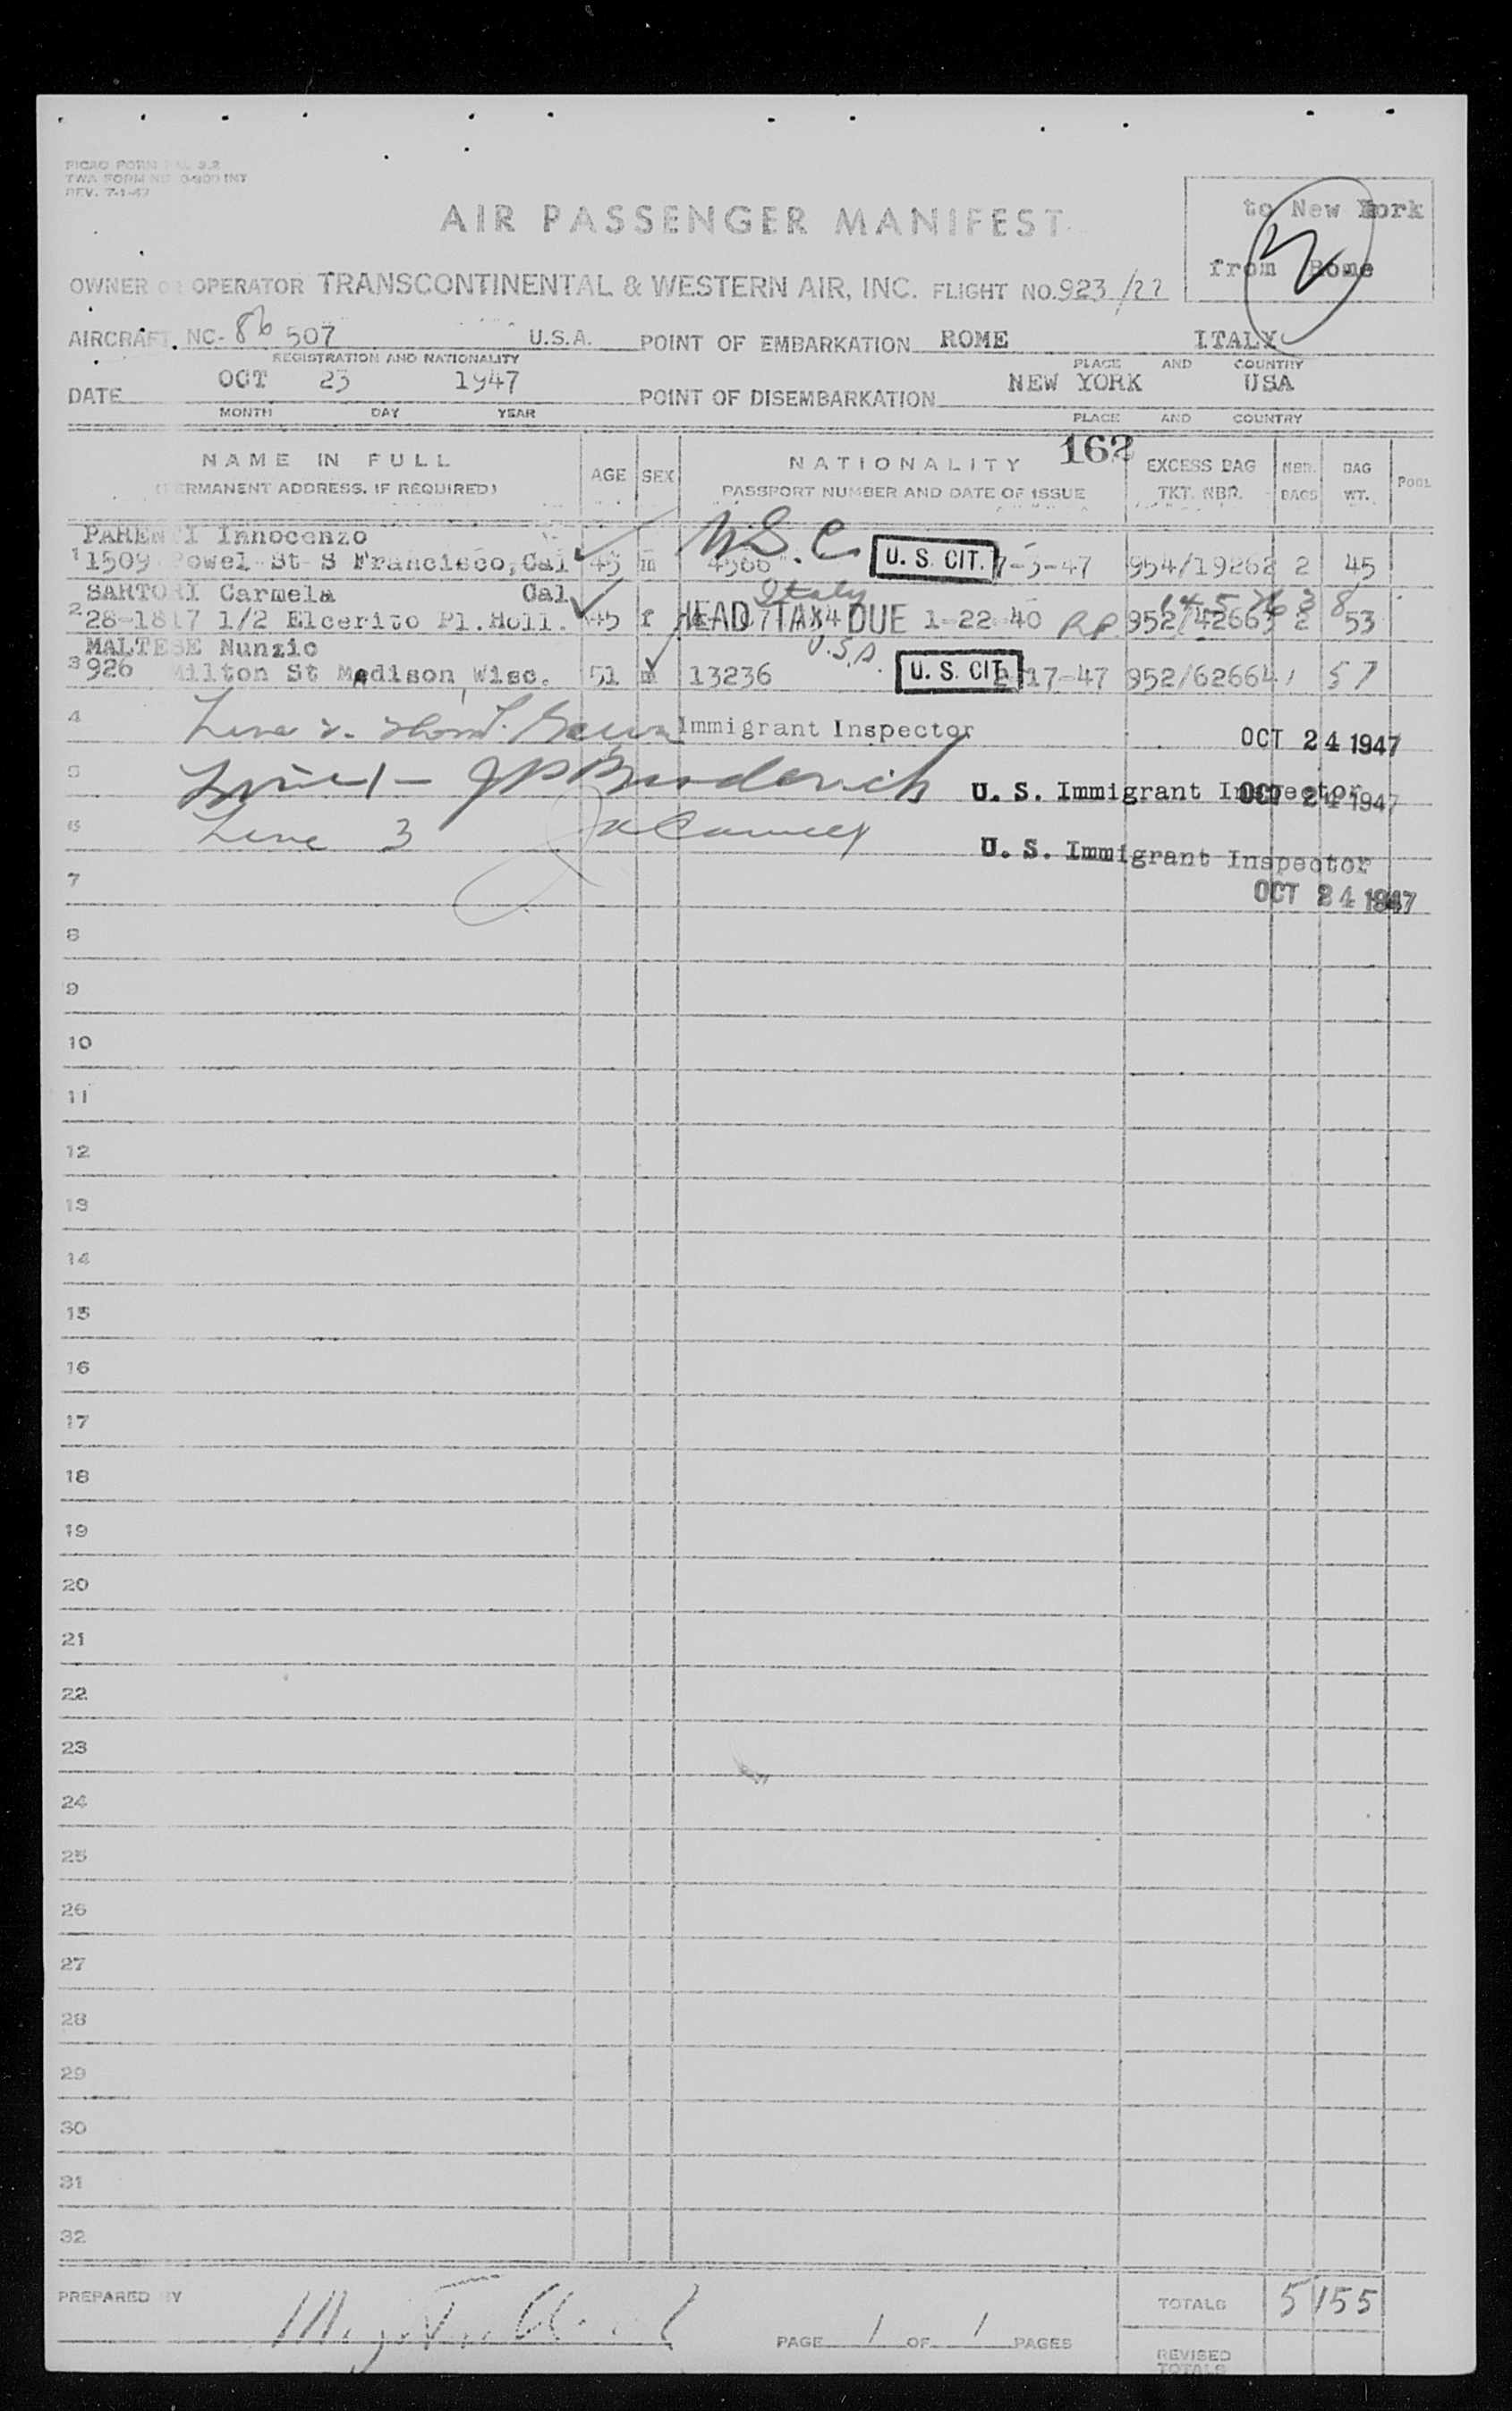 REV. 7-1-47
to New York
AIR PASSENGER MANIFEST
from Rome
OWNER OR OPERATOR TRANSCONTINENTAL & WESTERN AIR, INC. FLIGHT NO. 923/22
AIRCRAFT NC- 86 507 U.S.A. POINT OF EMBARKATION ROME ITALY
REGISTRATION AND NATIONALITY PLACE AND COUNTRY
DATE OCT 23 1947 POINT OF DISEMBARKATION NEW YORK USA
MONTH DAY YEAR PLACE AND COUNTRY
162
NAME IN FULL AGE SEX NATIONALITY EXCESS BAG NBR. BAG POOL
(PERMANENT ADDRESS, IF REQUIRED) PASSPORT NUMBER AND DATE OF ISSUE TKT. NBR. BAGS WT.
PARENTI Innocenzo U.S.C.
1 1509 Powel St S Francisco, Cal 45 m U. S. CIT. 7-3-47 954/19262 2 45
SARTORI Carmela Cal Italy
2 28-1817 1/2 Elcerito Pl. Holl. 45 f HEAD TAX DUE 1-22-40 R.P. 952/42663 2 53
MALTESE Nunzio U.S.A.
3 926 Milton St Madison Wisc. 51 m 13236 U. S. CIT. 17-47 952/62664 1 57
4 Line 2 Immigrant Inspector OCT 24 1947
5 Line 1 - U. S. Immigrant Inspector OCT 24 1947
6 Line 3 U. S. Immigrant Inspector
7 OCT 24 1947
8
9
10
11
12
13
14
15
16
17
18
19
20
21
22
23
24
25
26
27
28
29
30
31
32
PREPARED BY TOTALS 5 155
PAGE 1 OF 1 PAGES
REVISED
TOTALS